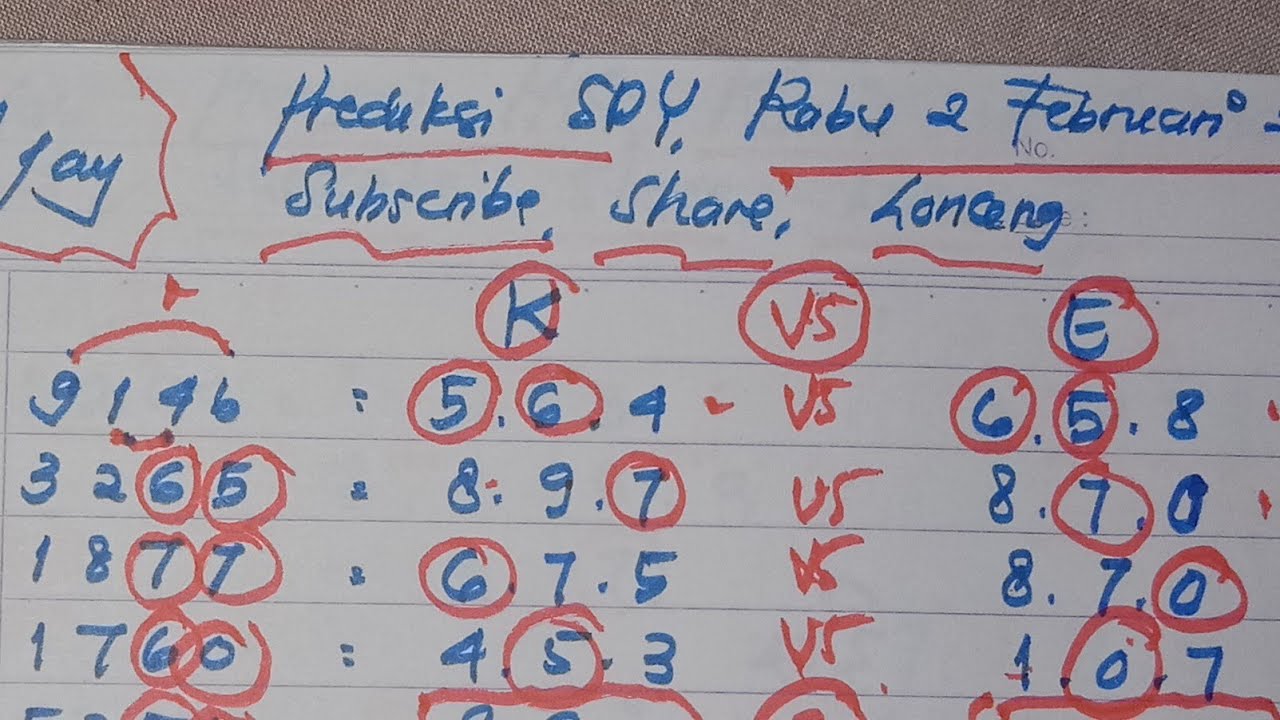 Prediksi SDY, Rabu 2 Februari
Jay
No.
Subscribe, Share, Lonceng
K VS E
9146 : 5.6.4 VS 6.5.8
3265 = 8.9.7 VS 8.7.0
1877 = 6.7.5 VS 8.7.0
1760 : 4.5.3 VS 1.0.7